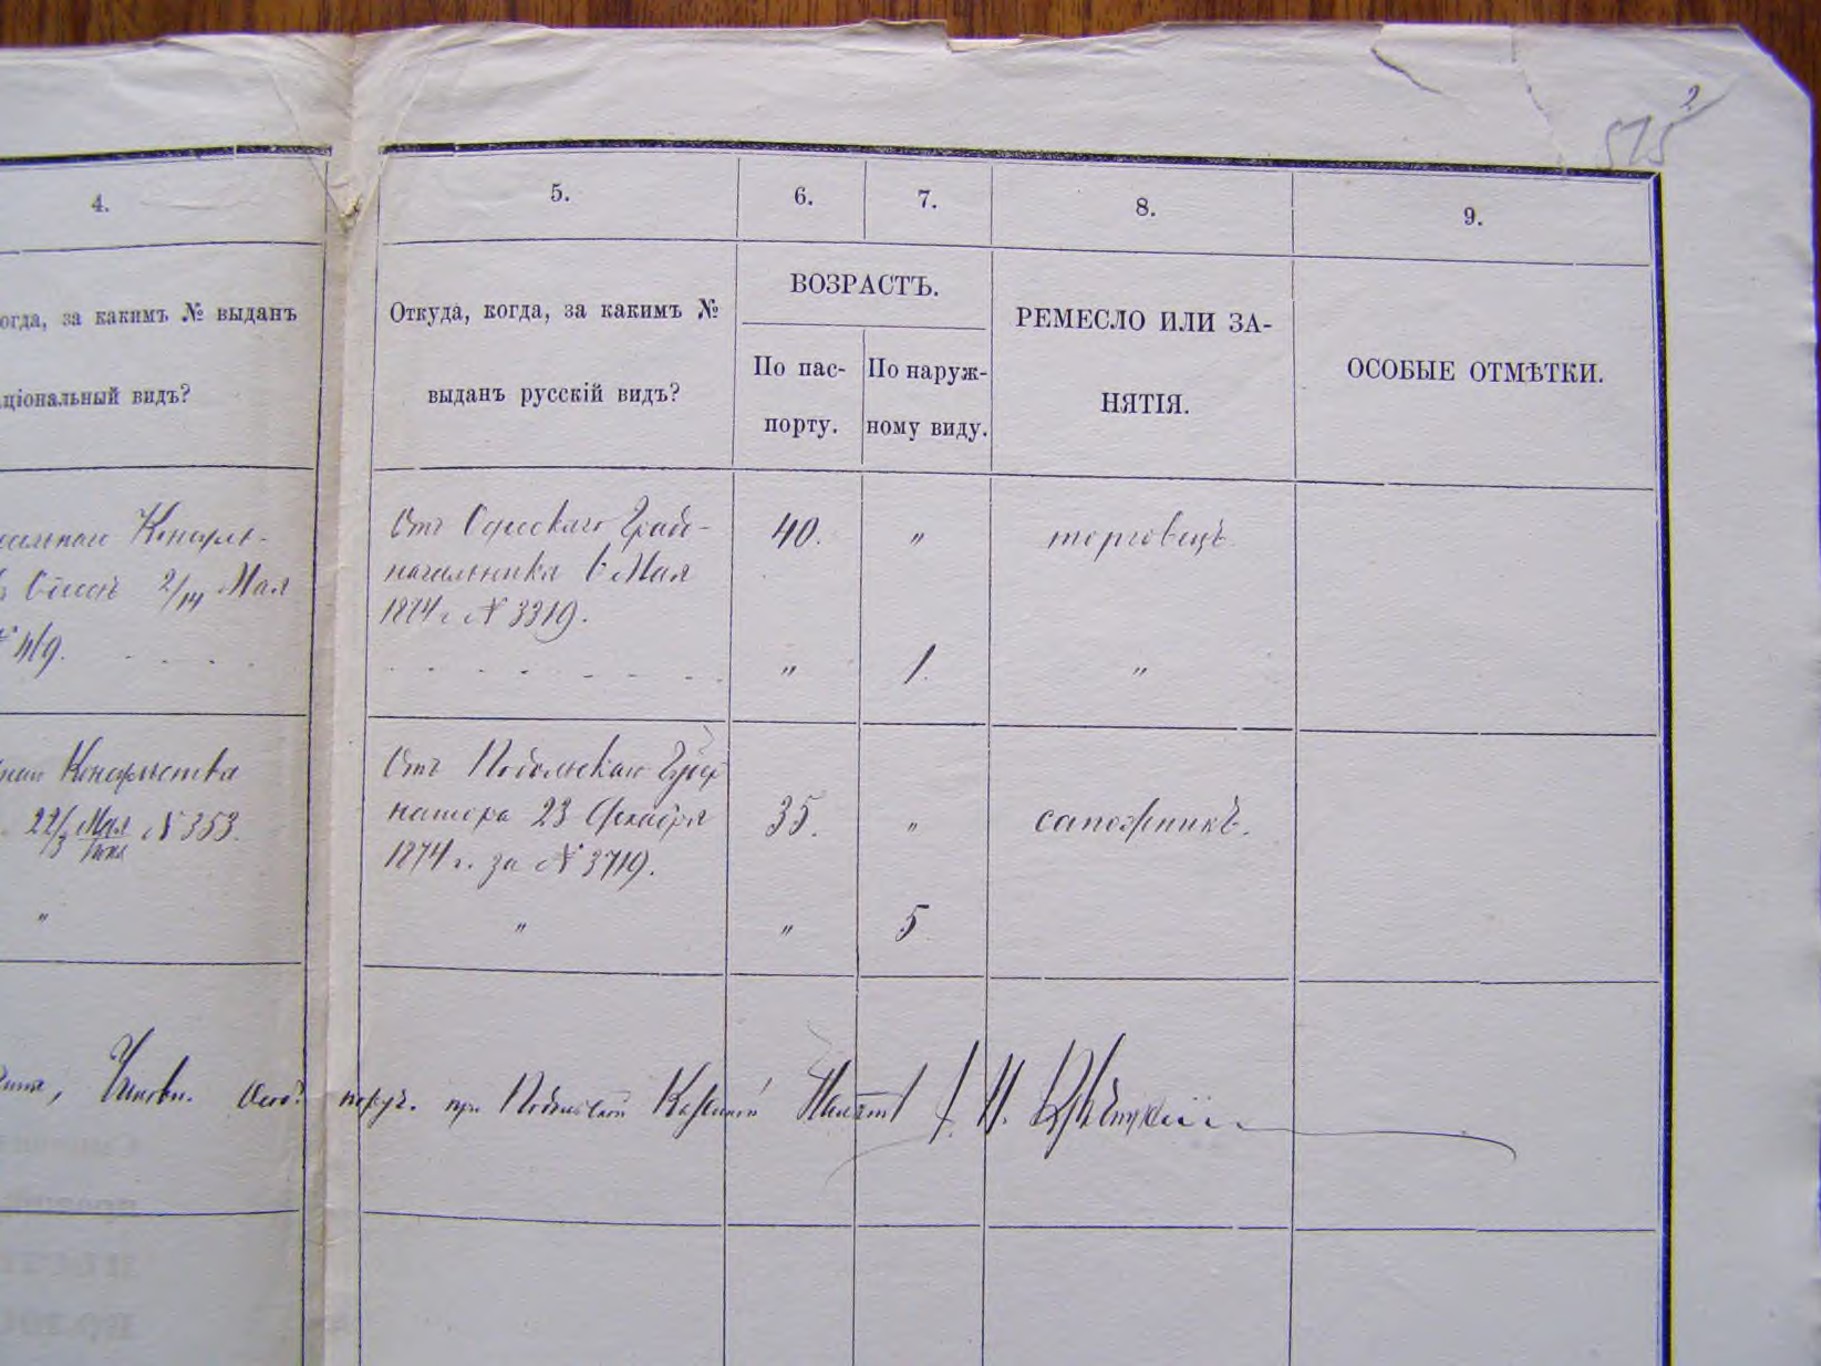 2
515
4.
5.
6.
7.
8.
9.
огда, за какимъ № выданъ
ціональный видъ?
Откуда, когда, за какимъ №
выданъ русскій видъ?
ВОЗРАСТЪ.
По пас-
порту.
По наруж-
ному виду.
РЕМЕСЛО ИЛИ ЗА-
НЯТІЯ.
ОСОБЫЕ ОТМѢТКИ.
Консуль-
2/14 Мая
№ 419.
Отъ Одесскаго Градо-
начальника 6 Мая
1874 г. № 3319.
40.
"
торговецъ
"
1.
"
Консульства
22/3 Мая/Іюня № 353.
"
Отъ Подольскаго Губер
натора 23 Декабря
1874 г. за № 3719.
"
35.
"
сапожникъ.
"
5
Чиновн. Особ. поруч. при Подольской Казенной Палатѣ